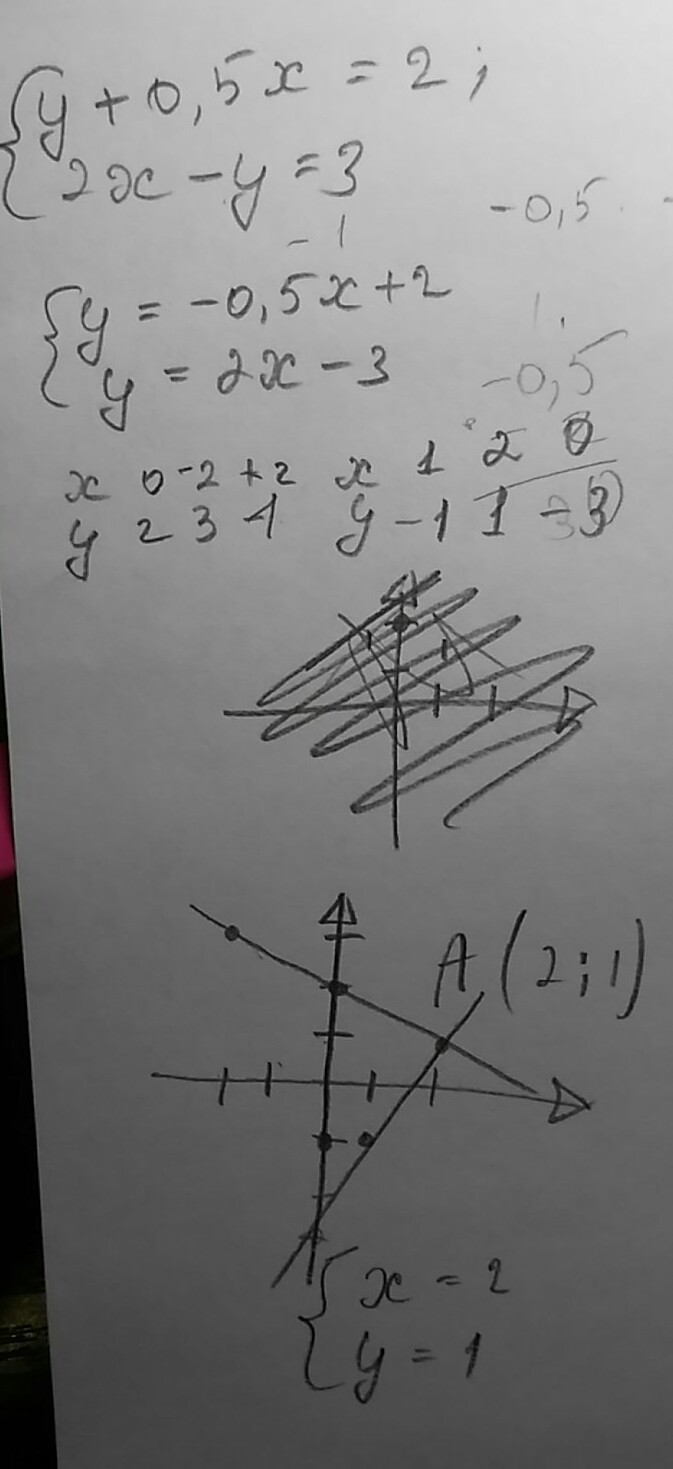 {y + 0,5x = 2;
2x - y = 3
-0,5
- 1
{y = -0,5x + 2
y = 2x - 3
1.
-0,5
x 0 -2 +2 x 1 2 0
y 2 3 1 y -1 1 -3
A (2;1)
{x = 2
y = 1